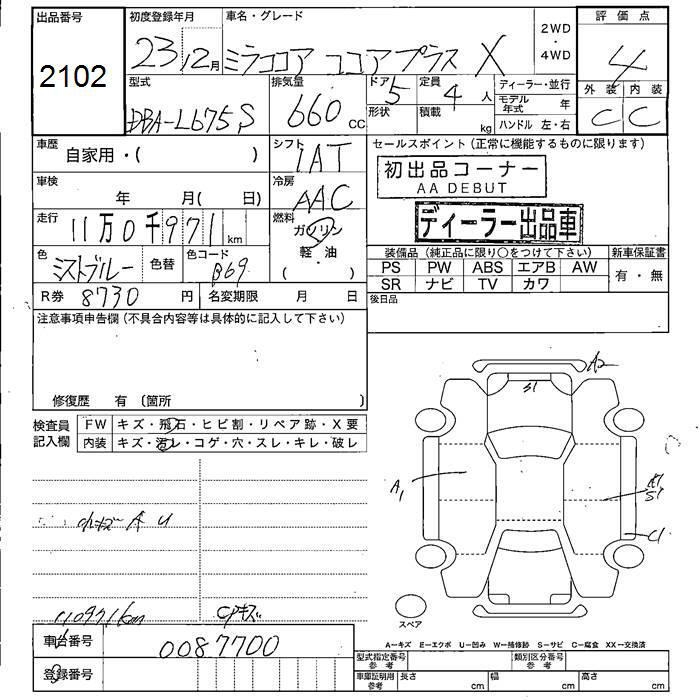 出品番号 初度登録年月 車名・グレード 2WD・4WD 評価点
2102 23 12月 ミラココア ココアプラス X 4
型式 排気量 ドア 定員 ディーラー・並行 外装 内装
DBA-L675S 660cc 5 4人 モデル年式 年 C C
形状 積載 kg ハンドル 左・右
車歴 シフト セールスポイント(正常に機能するものに限ります)
自家用・( ) IAT
初出品コーナー
AA DEBUT
車検 冷房
年 月( 日) AAC
ディーラー出品車
走行 燃料
11万0千971km ガソリン
軽油
( )
色 色替 色コード
ミストブルー B69
装備品(純正品に限り○をつけて下さい) 新車保証書
PS PW ABS エアB AW 有・無
SR ナビ TV カワ
R券 8730円 名変期限 月 日
後日品
注意事項申告欄(不具合内容等は具体的に記入して下さい)
修復歴 有(箇所 )
検査員記入欄
FW キズ・飛石・ヒビ割・リペア跡・X要
内装 キズ・汚レ・コゲ・穴・スレ・キレ・破レ
A2
S1
A1
A1
S1
C1
小キズ A U
110971km CPキズ
スペア
A―キズ E―エクボ U―凹み W―補修跡 S―サビ C―腐食 XX―交換済
車台番号 0087700
登録番号
型式指定番号 参考 類別区分番号 参考
車庫証明用 参考 長さ cm 幅 cm 高さ cm